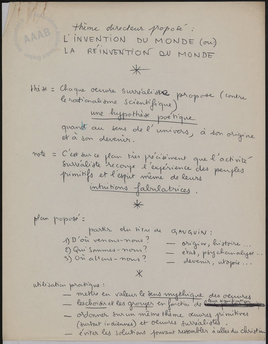 AAAB
thème directeur proposé :
L'INVENTION DU MONDE (ou)
LA RÉINVENTION DU MONDE
thèse = Chaque oeuvre surréaliste propose (contre
le rationalisme scientifique)
une hypothèse poétique
quant au sens de l'univers, à son origine
et à son devenir.
note = C'est sur ce plan très précisément que l'activité
surréaliste recoupe l'expérience des peuples
primitifs et l'esprit même de leurs
intuitions fabulatrices.
plan proposé :
partir du titre de GAUGUIN :
1) D'où venons-nous ? — origine, histoire...
2) Que sommes-nous ? — état, psychanalyse...
3) Où allons-nous ? — devenir, utopie...
utilisation pratique :
— mettre en valeur le sens mythique des oeuvres
— les choisir et les grouper en fonction de
— ordonner sur un même thème oeuvres primitives
(surtout indiennes) et oeuvres surréalistes.
— éviter les solutions pouvant ressembler à celles du christian